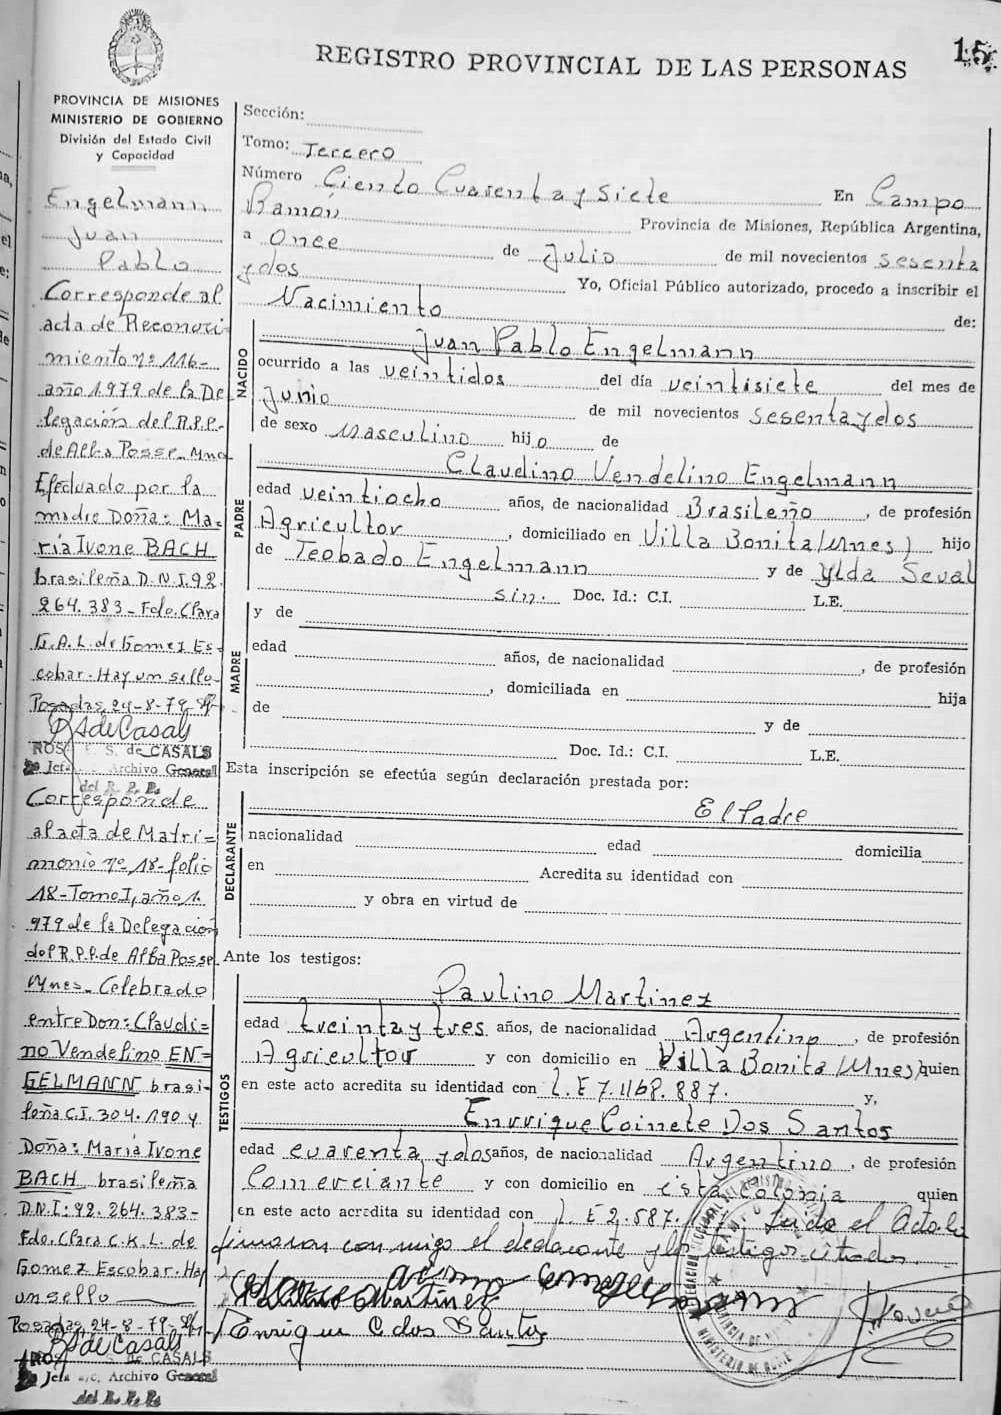 REGISTRO PROVINCIAL DE LAS PERSONAS
15
PROVINCIA DE MISIONES
MINISTERIO DE GOBIERNO
División del Estado Civil
y Capacidad
Engelmann
Juan
Pablo
Corresponde al
acta de Reconoci-
miento nº 116-
año 1.979 de la De
legación del R.P.P.
de Alba Posse_Mnes
Efectuado por la
madre Doña: Ma=
ría Ivone BACH
brasileña D.N.I. 92.
264.383_Fdo. Clara
G.A.L. de Gomez Es-
cobar. Hay un sello_
Posadas, 24-8-79
RSdeCasals
ROS S. de CASALS
Jefa Archivo General
del R. P. P.
Corresponde
al acta de Matri=
monio nº 18-folio
18-Tomo I, año 1.
979 de la Delegación
del R.P.P. de Alba Posse
Mnes_Celebrado
entre Don: Claudi=
no Vendelino EN=
GELMANN brasi-
leña C.I. 304.190 y
Doña: María Ivone
BACH brasileña
D.N.I: 92.264.383-
Fdo. Clara C.K.L. de
Gomez Escobar. Hay
un sello
Posadas, 24-8-79-
RSdeCasals
ROS de CASALS
Jefa a/c. Archivo General
del R. P. P.
Sección:
Tomo: Tercero
Número Ciento Cuarenta y Siete En Campo
Ramón Provincia de Misiones, República Argentina,
a Once de Julio de mil novecientos sesenta
y dos Yo, Oficial Público autorizado, procedo a inscribir el
Nacimiento de:
NACIDO
Juan Pablo Engelmann
ocurrido a las veintidos del día veintisiete del mes de
Junio de mil novecientos sesenta y dos
de sexo Masculino hijo de
PADRE
Claudino Vendelino Engelmann
edad veintiocho años, de nacionalidad Brasileño, de profesión
Agricultor, domiciliado en Villa Bonita (Mnes) hijo
de Teobado Engelmann y de Ylda Seval
sin. Doc. Id.: C.I. L.E.
MADRE
y de
edad años, de nacionalidad , de profesión
, domiciliada en hija
de y de
Doc. Id.: C.I. L.E.
Esta inscripción se efectúa según declaración prestada por:
DECLARANTE
El Padre
nacionalidad edad domicilia
en Acredita su identidad con
y obra en virtud de
Ante los testigos:
TESTIGOS
Paulino Martinez
edad treinta y tres años, de nacionalidad Argentino, de profesión
Agricultor y con domicilio en Villa Bonita (Mnes) quien
en este acto acredita su identidad con L.E 7.1168.887. y,
Enrrique Coinete Dos Santos
edad cuarenta y dos años, de nacionalidad Argentino, de profesión
Comerciante y con domicilio en esta colonia quien
en este acto acredita su identidad con L.E 2.587. Leida el Acta la
firmaron conmigo el declarante y los testigos citados.
Paulino Martinez
Enrique C dos Santos